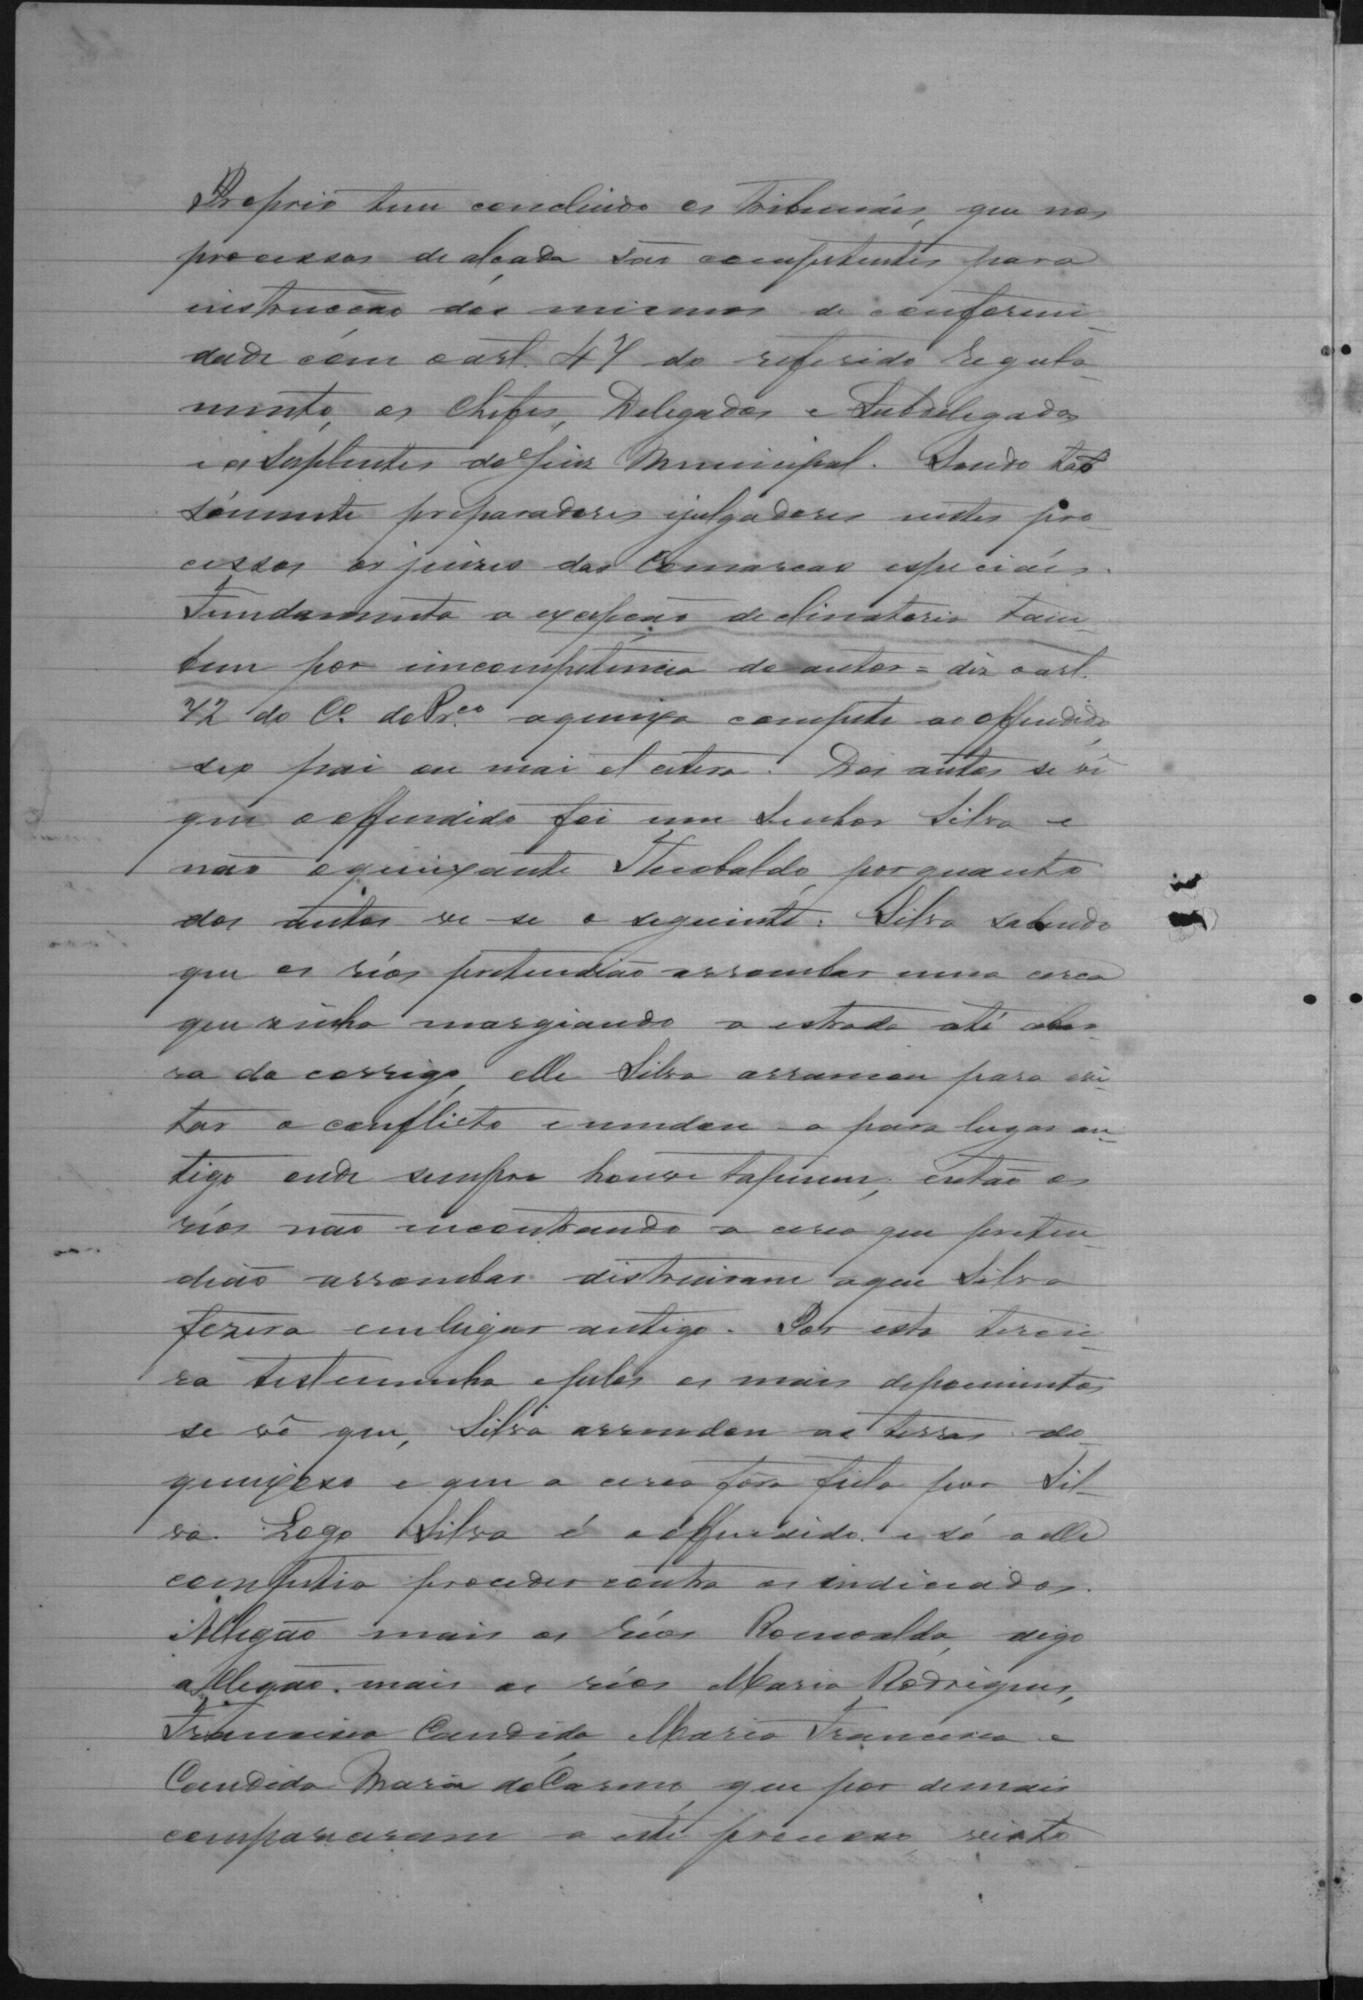 Proprio tem concluido os Tribunáis, que nos
processos de alçada são competentes para
instrucção dos mesmos de conformi-
dade com o art. 47 do referido regula-
mento, os Chefes, Delegados e Subdelegados
e os Suplentes do Juiz Municipal. Sendo tão
sómente preparadores e julgadores nestes pro
cessos os juizes das Comarcas especiáis.
Fundamenta a excepção declinatoria tam-
bem por incompetencia do autor = diz o art.
72 do Co. do Pr.co a queixa compete ao offendido,
seo pai ou mai et cetera. Dos autos se vê
que o offendido foi um Senhor Silva e
não o queixante Theobaldo, porquanto
dos autos ve-se o seguinte: Silva sabendo
que os réos pretendião arrombar uma cerca
que vinha margiando a estrada até a bar-
ra do corrigo, elle Silva arrancou para evi-
tar o conflicto e mudou-a para lugar an-
tigo onde sempre houve tapume, então os
réos não encontrando a cerca que preten-
dião arrombar distruiram a que Silva
fezera em lugar antigo. Por esta tercei-
ra testemunha e pelos os mais depoimentos
se vê que, Silva arrendou as terras do
queixoso e que a cerca fora feita por Sil-
va. Logo Silva é o offendido. e só a elle
competia proceder contra os indiciados.
Allegão mais os réos Romoaldo, digo
allegão. mais os réos Maria Rodrigues,
Francisca Candida Maria Francisca e
Candida Maria do Carmo, que por demais
compareceram a este processo visto